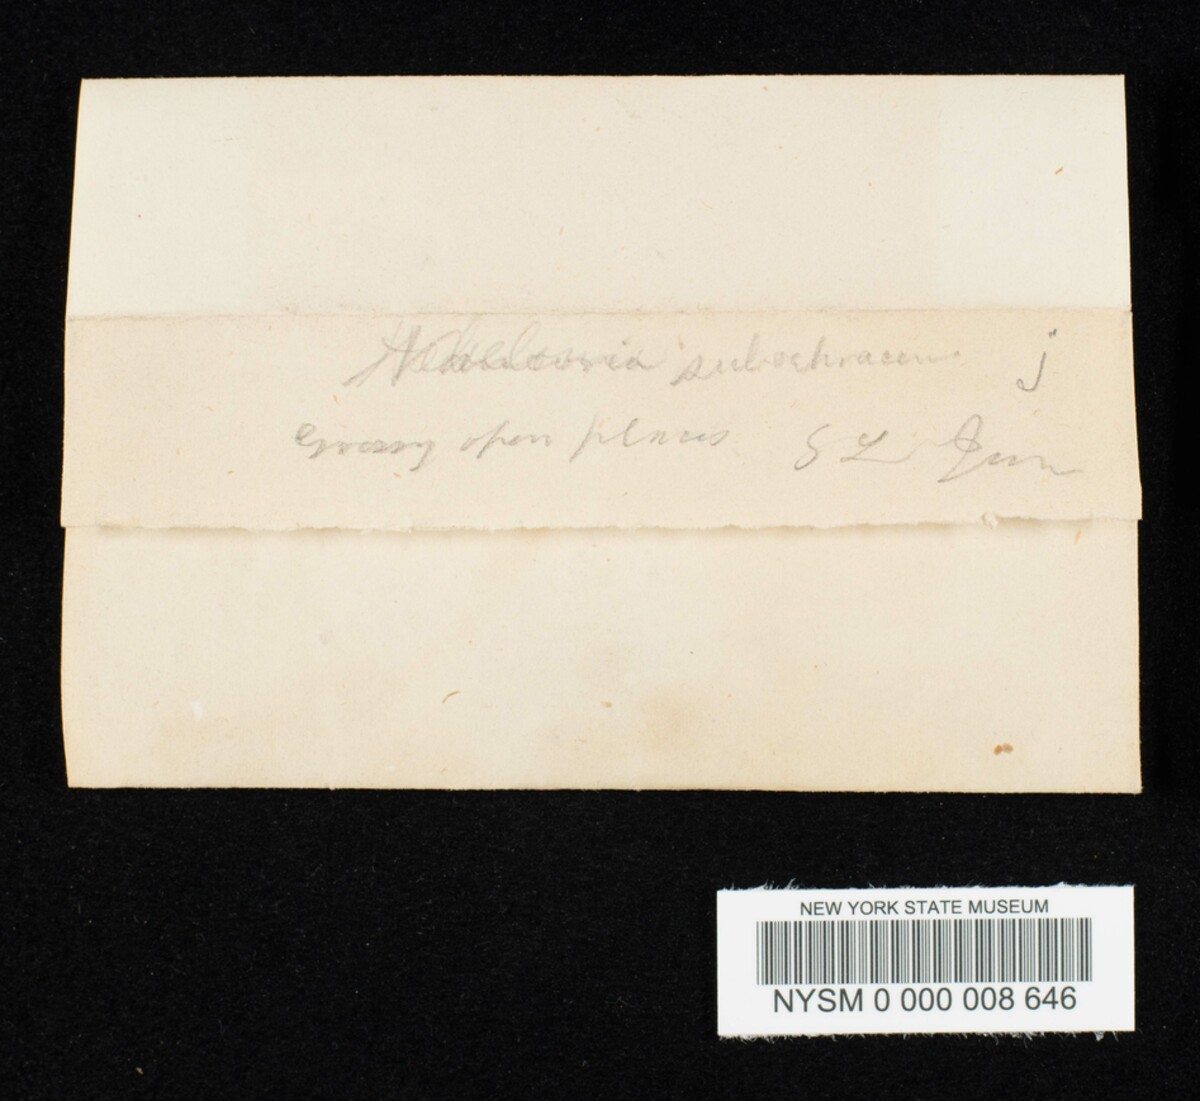 subochracea j
Grassy open places S L June
NEW YORK STATE MUSEUM
NYSM 0 000 008 646